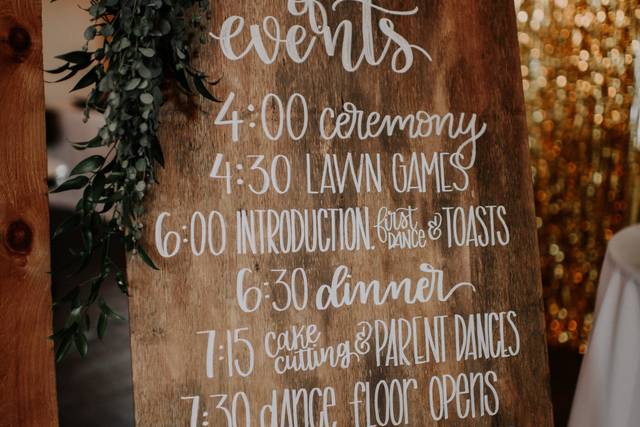 of
events
4:00 ceremony
4:30 LAWN GAMES
6:00 INTRODUCTION. first DANCE & TOASTS
6:30 dinner
7:15 cake cutting & PARENT DANCES
7:30 dANCE floor opens